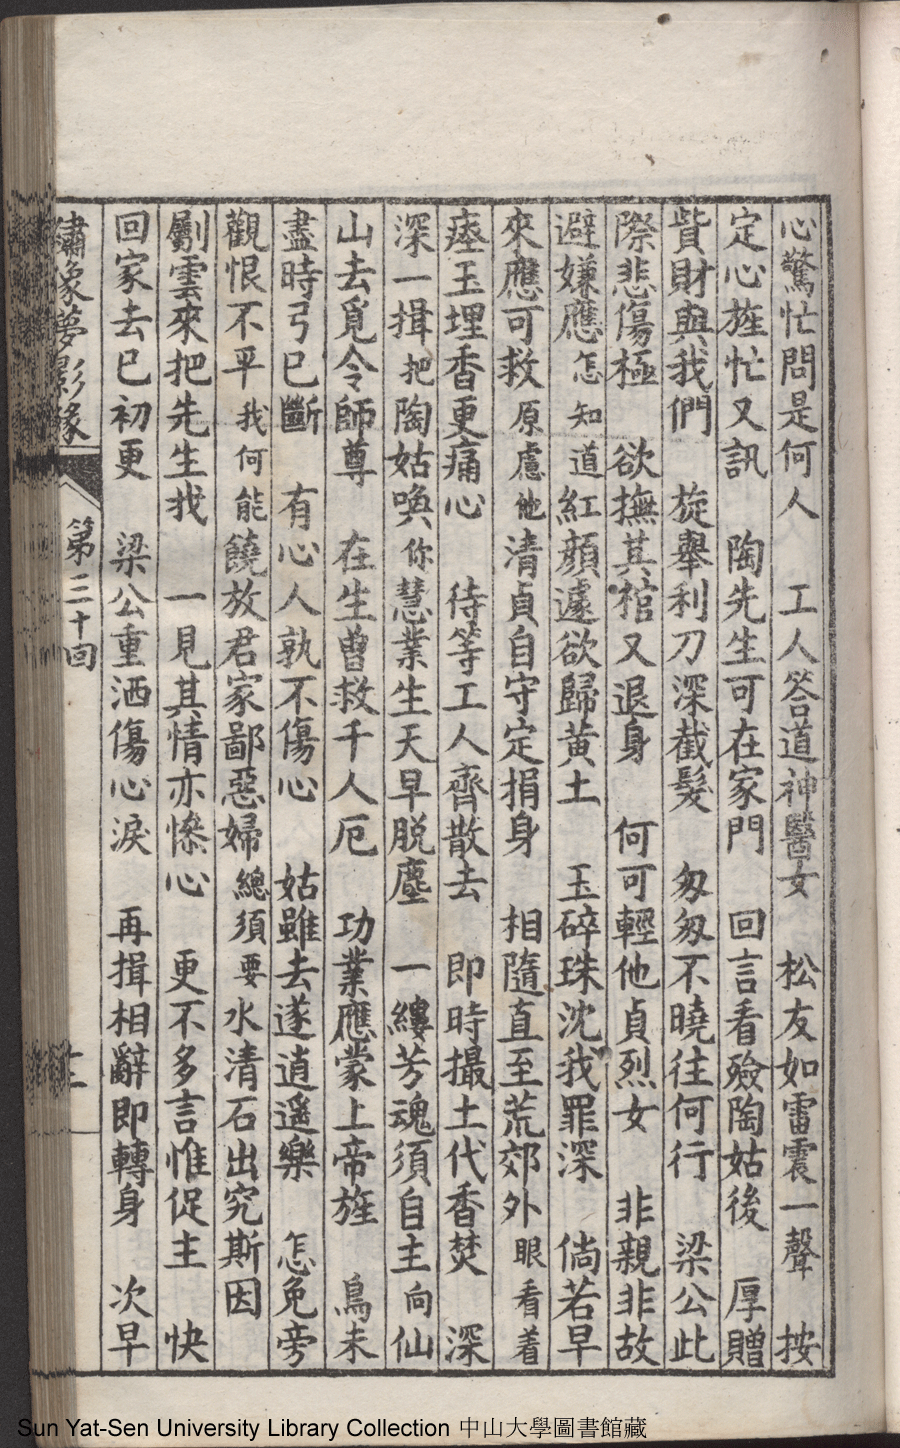 心驚忙問是何人　工人答道神醫女　松友如雷震一聲　按
定心旌忙又訊　陶先生可在家門　回言看殮陶姑後　厚贈
貲財與我們　旋舉利刀深截髮　匆匆不曉往何行　梁公此
際悲傷極　欲撫其棺又退身　何可輕他貞烈女　非親非故
避嫌應怎知道紅顔遽欲歸黃土　玉碎珠沈我罪深　倘若早
來應可救原慮他清貞自守定捐身　相隨直至荒郊外眼看着
瘞玉埋香更痛心　待等工人齊散去　即時撮土代香焚　深
深一揖把陶姑喚你慧業生天早脫塵　一縷芳魂須自主向仙
山去覓令師尊　在生曾救千人厄　功業應蒙上帝旌　鳥未
盡時弓已斷　有心人孰不傷心　姑雖去遂逍遥樂　怎免旁
觀恨不平我何能饒放君家鄙惡婦總須要水清石出究斯因
劚雲來把先生找　一見其情亦慘心　更不多言惟促主　快
回家去已初更　梁公重洒傷心淚　再揖相辭即轉身　次早
繡像夢影緣　第三十回
Sun Yat-Sen University Library Collection 中山大學圖書館藏